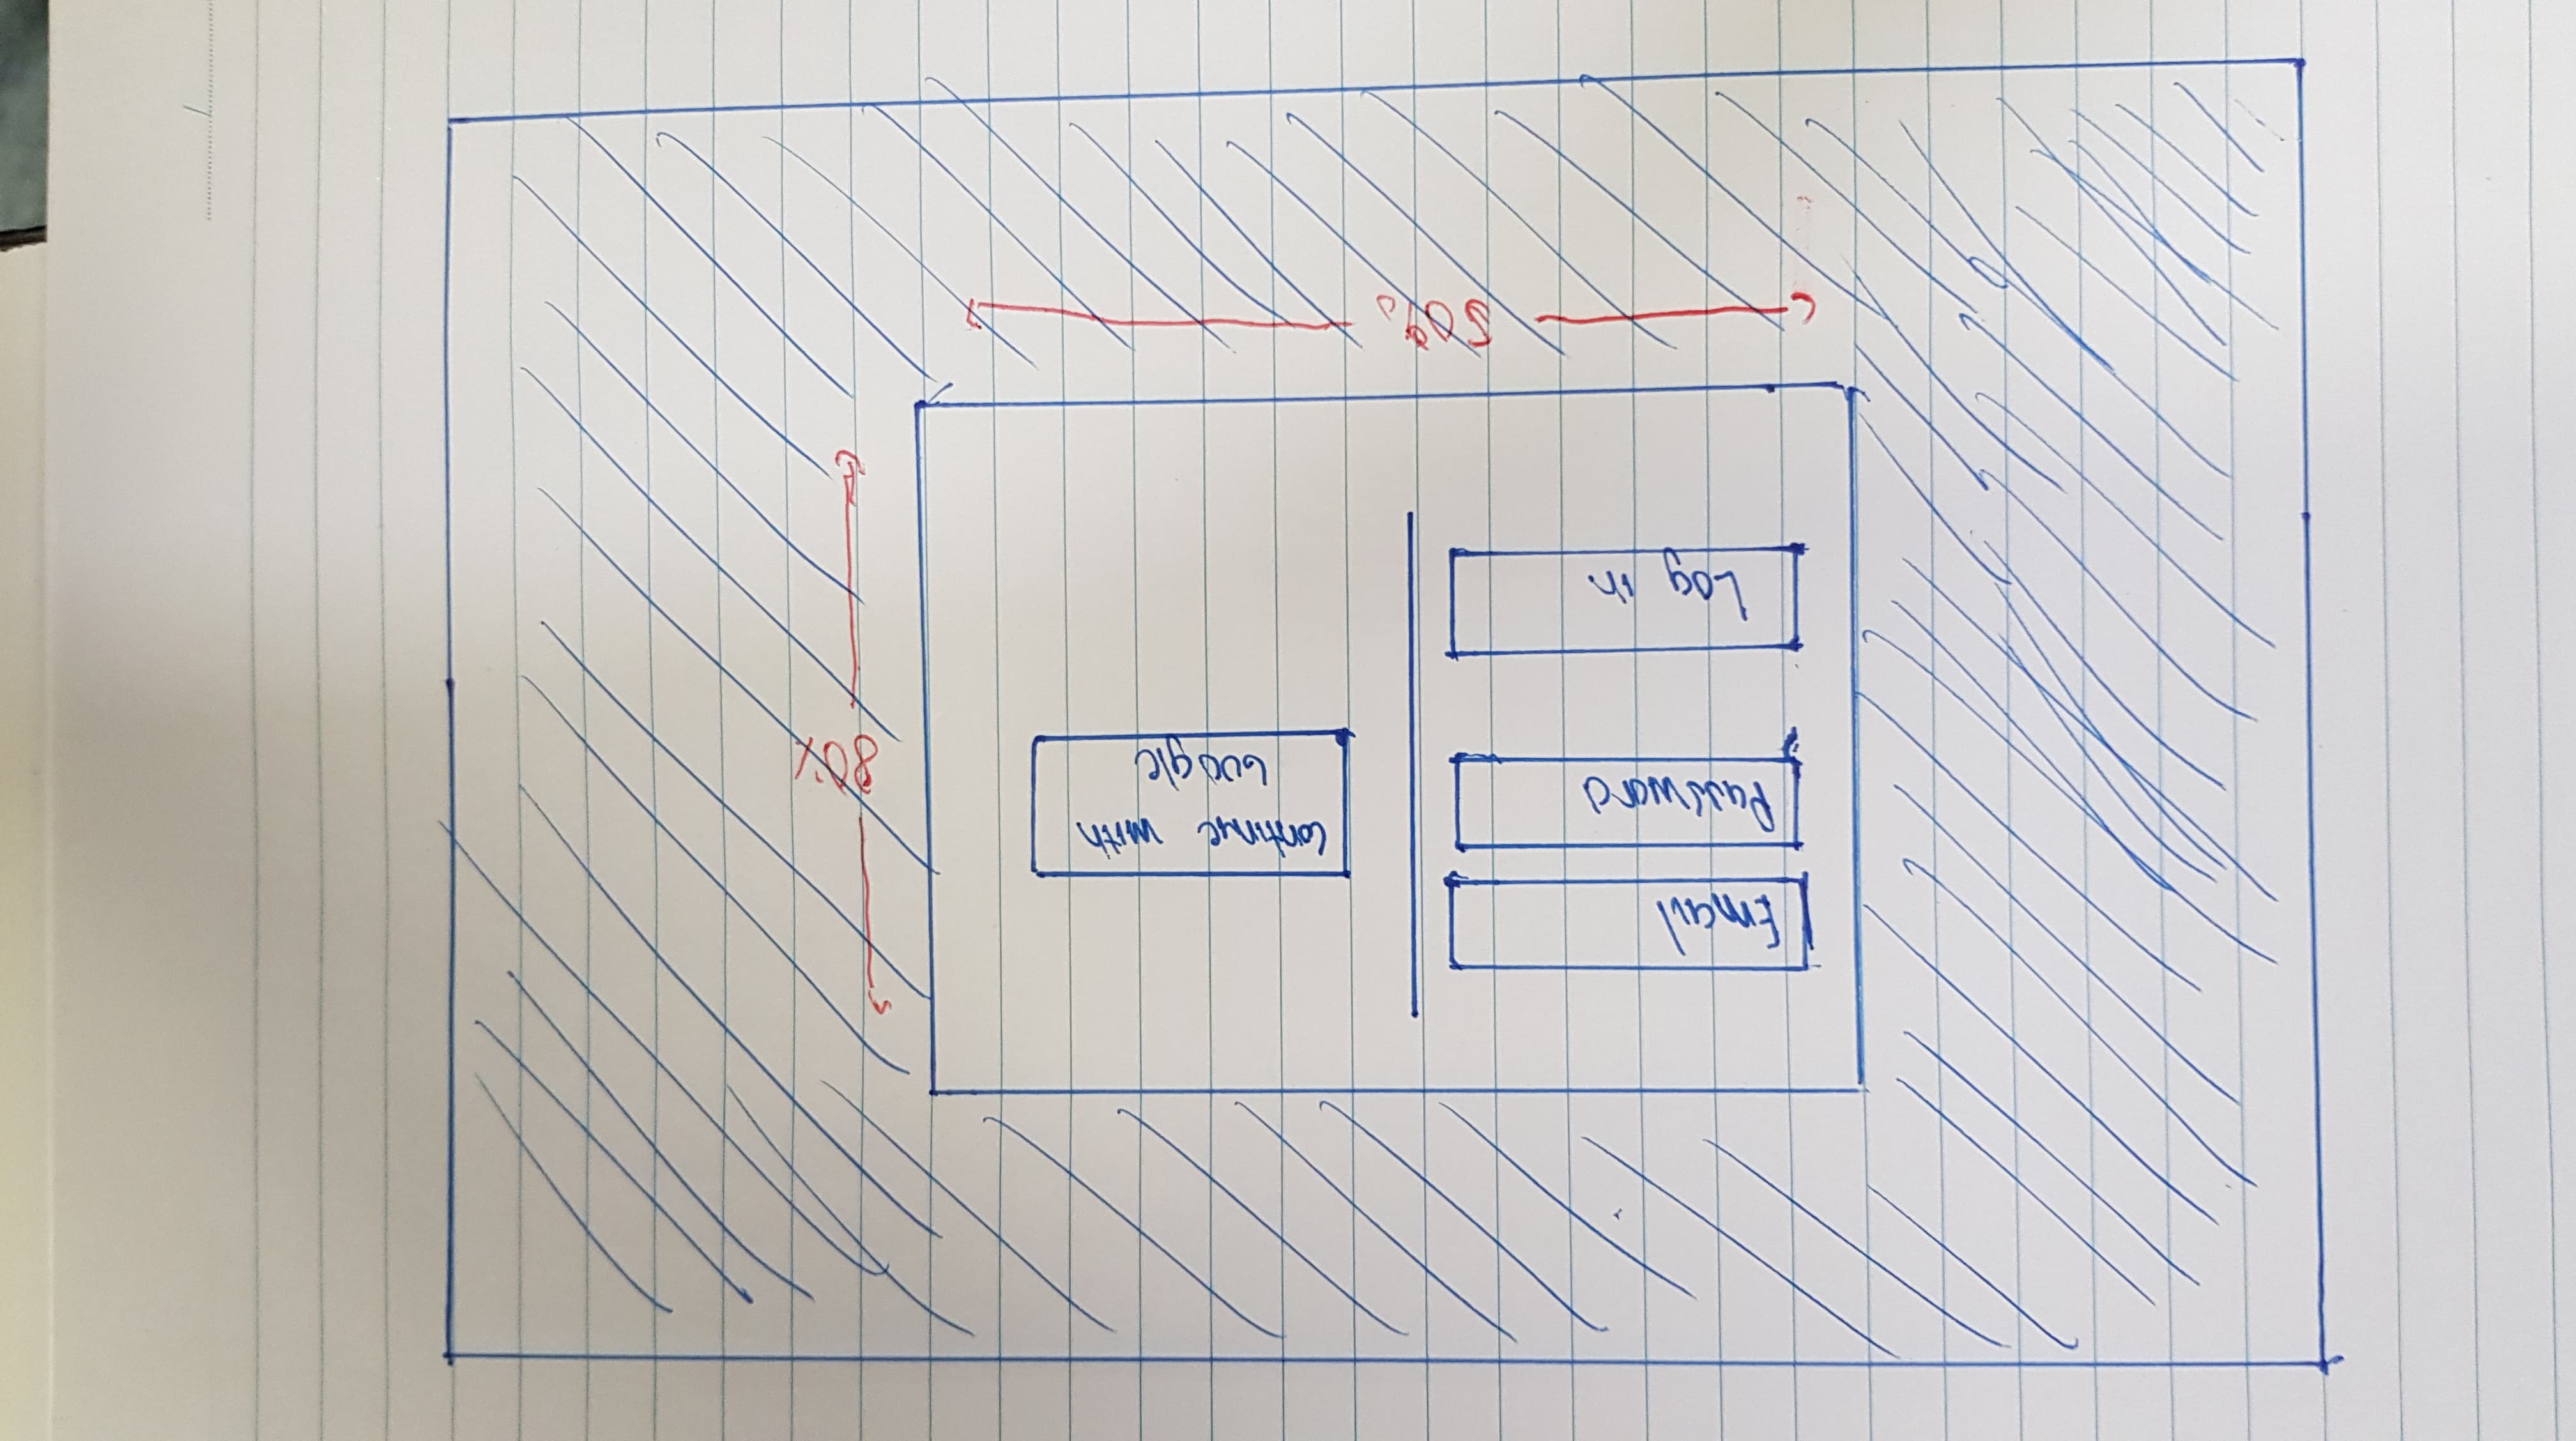 Email
Password
Log in
Continue with
Google
80%
50%